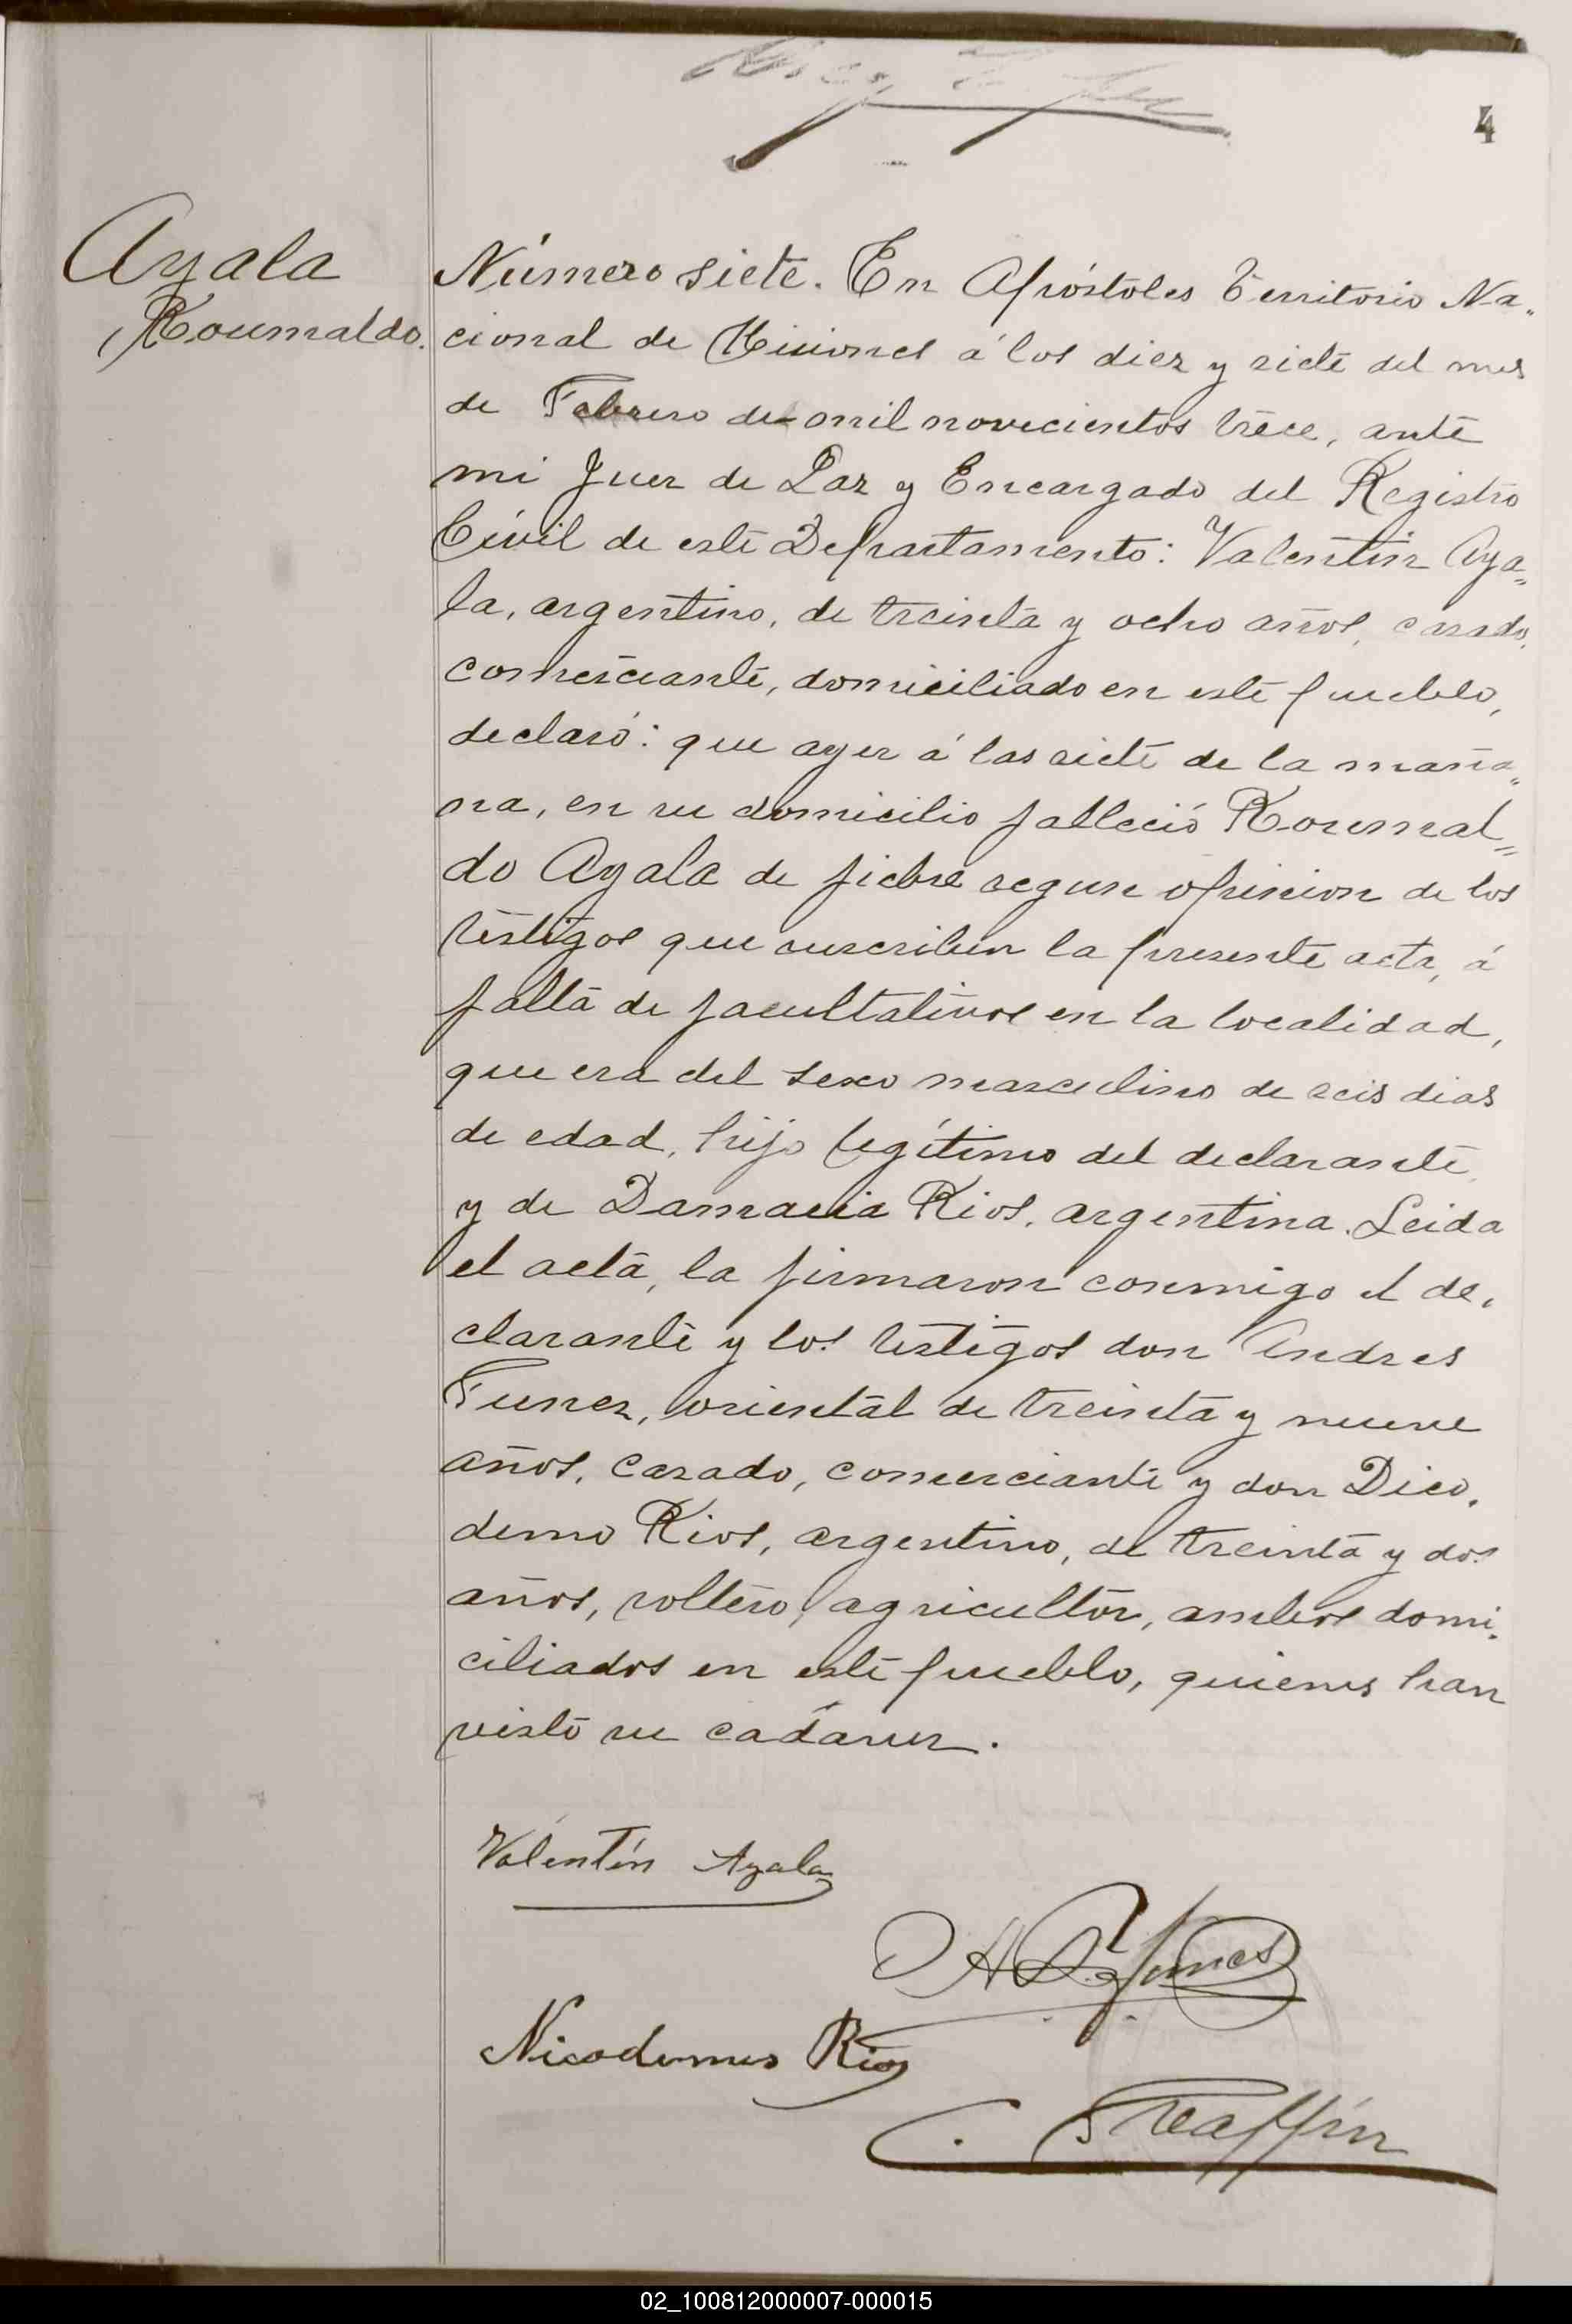 4
Ayala
Roumaldo.
Número siete. En Apóstoles Territorio Na-
cional de Misiones á los diez y siete del mes
de Febrero de mil novecientos trece, ante
mi Juez de Paz y Encargado del Registro
Civil de este Departamento: Valentin Aya=
la, argentino, de treinta y ocho años, casado,
comerciante, domiciliado en este pueblo,
declaró: que ayer á las siete de la maña=
na, en su domicilio falleció Roumal=
do Ayala de fiebre segun opinion de los
testigos que suscriben la presente acta, á
falta de facultativos en la localidad,
que era del sexo masculino de seis dias
de edad, hijo legítimo del declarante
y de Damacia Rios, argentina. Leida
el acta, la firmaron conmigo el de-
clarante y los testigos don Andres
Funez, oriental de treinta y nueve
años, casado, comerciante y don Dico-
demo Rios, argentino, de treinta y dos
años, soltero, agricultor, ambos domi-
ciliados en este pueblo, quienes han
visto su cadaver.
Valentín Ayala
Funes
Nicodemus Rios
02_100812000007-000015